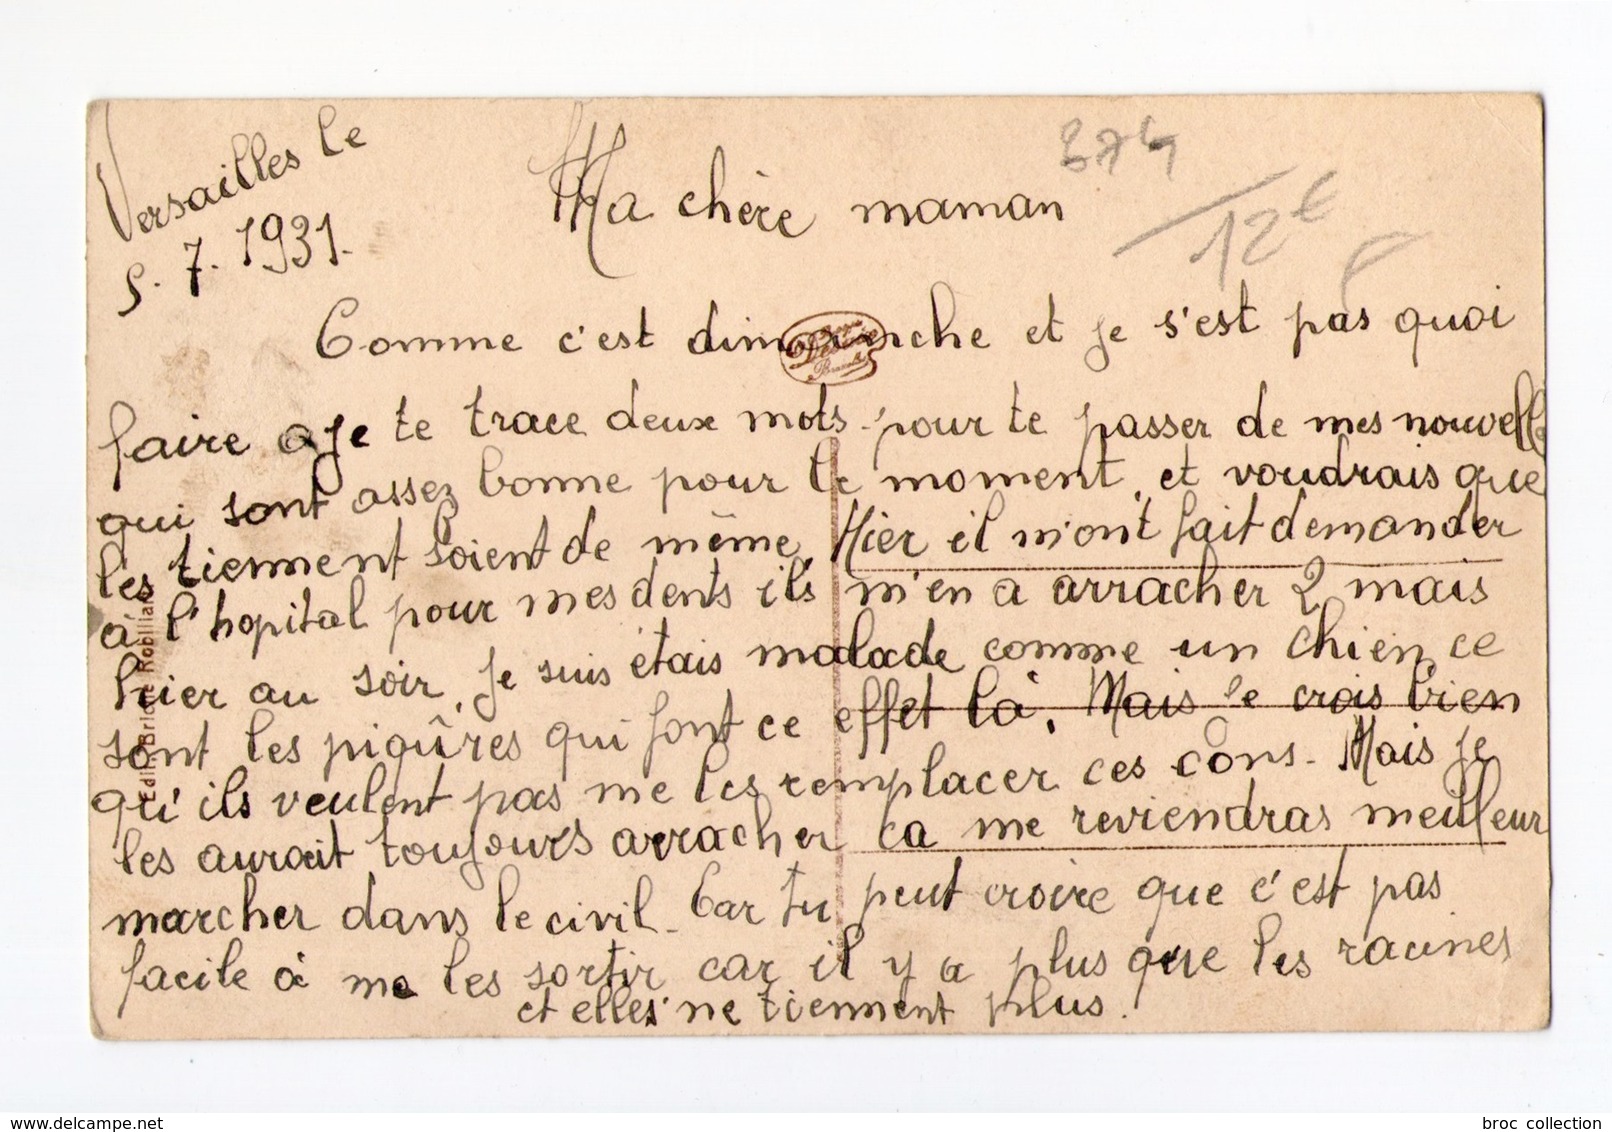 Versailles le
5. 7. 1931.
Ma chère maman
374
12 €
Comme c'est dimenche et je s'est pas quoi
faire aje te trace deux mots pour te passer de mes nouvelle
qui sont assez bonne pour le moment, et voudrais que
les tiennent soient de même, Hier il m'ont fait demander
à l'hopital pour mes dents ils m'en a arracher 2 mais
hier au soir, je suis étais malade comme un chien ce
sont les piqûres qui font ce effet là. Mais je crois bien
qu'ils veulent pas me les remplacer ces cons. Mais je
les aurait toujours arracher ca me reviendras meilleur
marcher dans le civil. Car tu peut croire que c'est pas
facile à me les sortir car il y a plus que les racines
et elles ne tiennent plus.
delcampe.net
broc collection